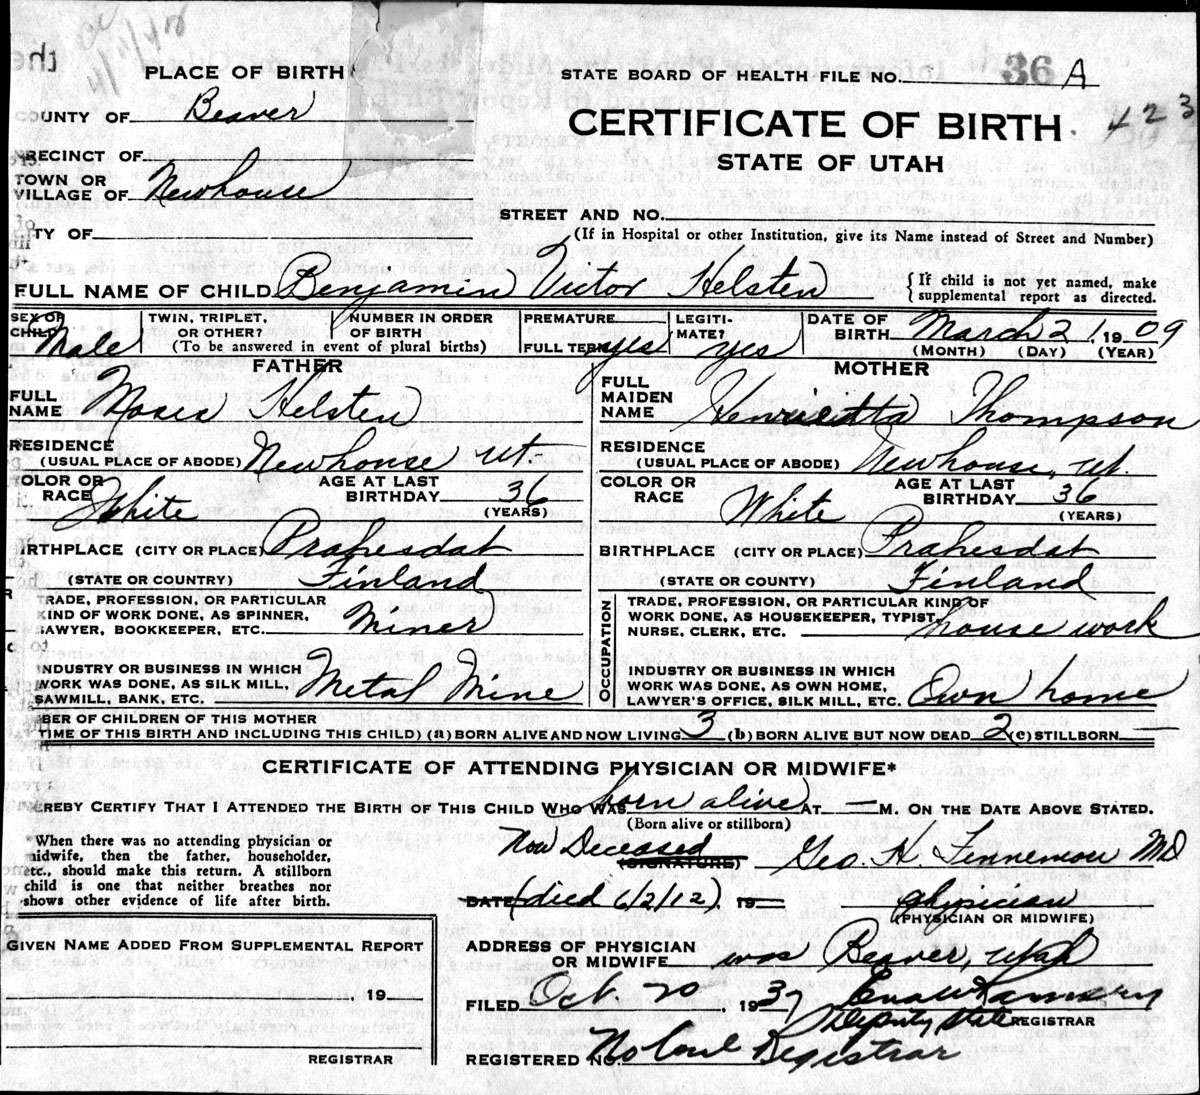 PLACE OF BIRTH
STATE BOARD OF HEALTH FILE NO. 36 A
COUNTY OF Beaver
CERTIFICATE OF BIRTH. 423
STATE OF UTAH
PRECINCT OF
TOWN OR
VILLAGE OF Newhouse
STREET AND NO.
CITY OF
(If in Hospital or other Institution, give its Name instead of Street and Number)
FULL NAME OF CHILD Benjamin Victor Helsten
{If child is not yet named, make
supplemental report as directed.
SEX OF
CHILD Male
TWIN, TRIPLET,
OR OTHER?
(To be answered in event of plural births)
NUMBER IN ORDER
OF BIRTH
PREMATURE
FULL TERM yes
LEGITI-
MATE? yes
DATE OF
BIRTH March 21, 1909
(MONTH) (DAY) (YEAR)
FATHER
FULL
NAME Moses Helsten
RESIDENCE
(USUAL PLACE OF ABODE) Newhouse Ut.
COLOR OR
RACE White
AGE AT LAST
BIRTHDAY 36
(YEARS)
BIRTHPLACE (CITY OR PLACE) Prahesdat
(STATE OR COUNTRY) Finland
TRADE, PROFESSION, OR PARTICULAR
KIND OF WORK DONE, AS SPINNER,
LAWYER, BOOKKEEPER, ETC. Miner
INDUSTRY OR BUSINESS IN WHICH
WORK WAS DONE, AS SILK MILL,
SAWMILL, BANK, ETC. Metal Mine
MOTHER
FULL
MAIDEN
NAME Henrietta Thompson
RESIDENCE
(USUAL PLACE OF ABODE) Newhouse, Ut.
COLOR OR
RACE White
AGE AT LAST
BIRTHDAY 36
(YEARS)
BIRTHPLACE (CITY OR PLACE) Prahesdat
(STATE OR COUNTY) Finland
OCCUPATION
TRADE, PROFESSION, OR PARTICULAR KIND OF
WORK DONE, AS HOUSEKEEPER, TYPIST,
NURSE, CLERK, ETC. house work
INDUSTRY OR BUSINESS IN WHICH
WORK WAS DONE, AS OWN HOME,
LAWYER'S OFFICE, SILK MILL, ETC. Own home
BER OF CHILDREN OF THIS MOTHER
TIME OF THIS BIRTH AND INCLUDING THIS CHILD) (a) BORN ALIVE AND NOW LIVING 3 (b) BORN ALIVE BUT NOW DEAD 2 (c) STILLBORN —
CERTIFICATE OF ATTENDING PHYSICIAN OR MIDWIFE*
HEREBY CERTIFY THAT I ATTENDED THE BIRTH OF THIS CHILD WHO WAS born alive AT — M. ON THE DATE ABOVE STATED.
(Born alive or stillborn)
When there was no attending physician or
midwife, then the father, householder,
etc., should make this return. A stillborn
child is one that neither breathes nor
shows other evidence of life after birth.
Now Deceased (SIGNATURE) Geo. H. Fennemow MD
DATE (died 6/2/12) 19— physician
(PHYSICIAN OR MIDWIFE)
GIVEN NAME ADDED FROM SUPPLEMENTAL REPORT
, 19
REGISTRAR
ADDRESS OF PHYSICIAN
OR MIDWIFE was Beaver, Utah
FILED Oct. 20, 1937
Deputy State REGISTRAR
REGISTERED NO. Registrar